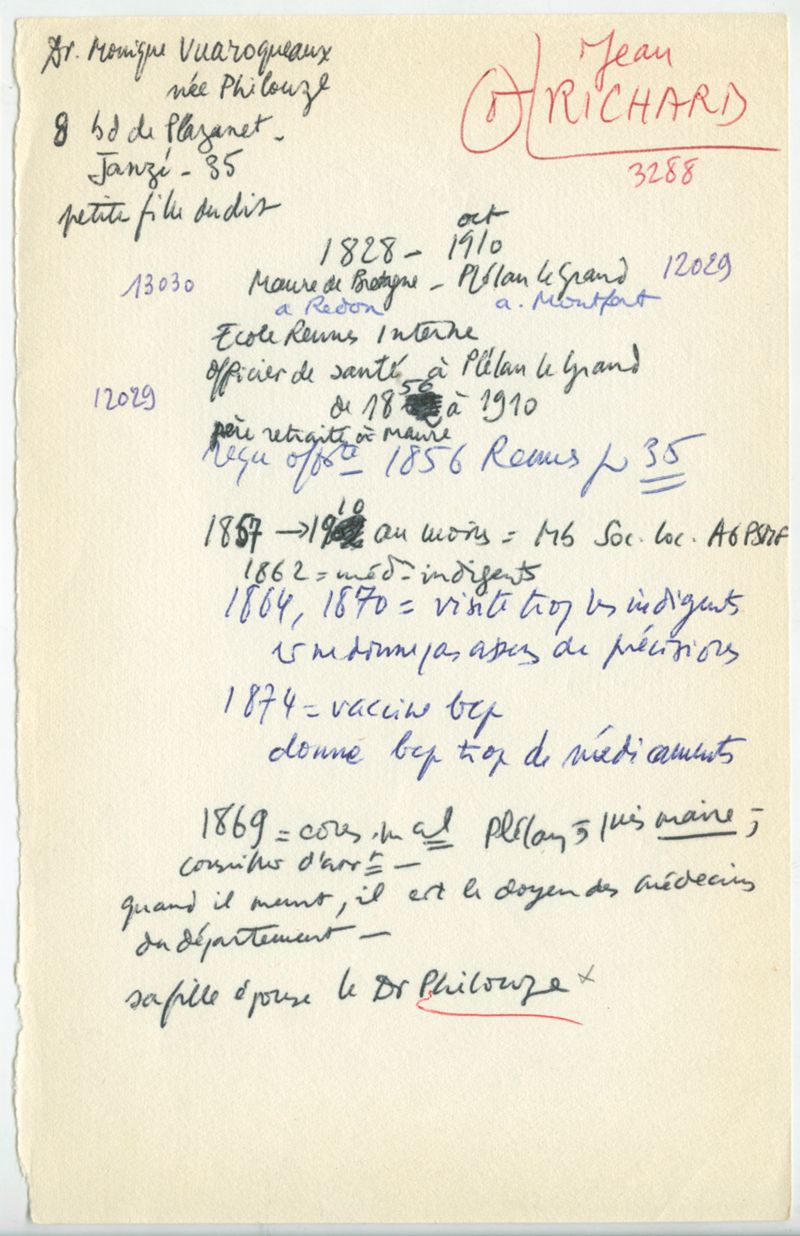 Dr. Monique Vuaroqueaux
née Philouze
8 bd de Plazanet -
Janzé - 35
petite fille dudit
Jean
RICHARD
3288
oct
1828 - 1910
13030 Maure de Bretagne - Plélan le Grand 12029
a Redon a. Montfort
Ecole Rennes Interne
officier de santé à Plélan le Grand
56
12029 de 18 à 1910
père retraité à Maure
reçu offté 1856 Rennes pr 35
10
1857 → 19 au moins = Mb Soc. loc. AGPSMF
1862 = méd. indigents
1864, 1870 = visite trop les indigents
et ne donne pas assez de précisions
1874 = vaccine bcp
donne bcp trop de médicaments
1869 = cons. mal Plélan, puis maire ;
conseiller d'arrt -
quand il meurt, il est le doyen des médecins
du département -
sa fille épouse le Dr Philouze x